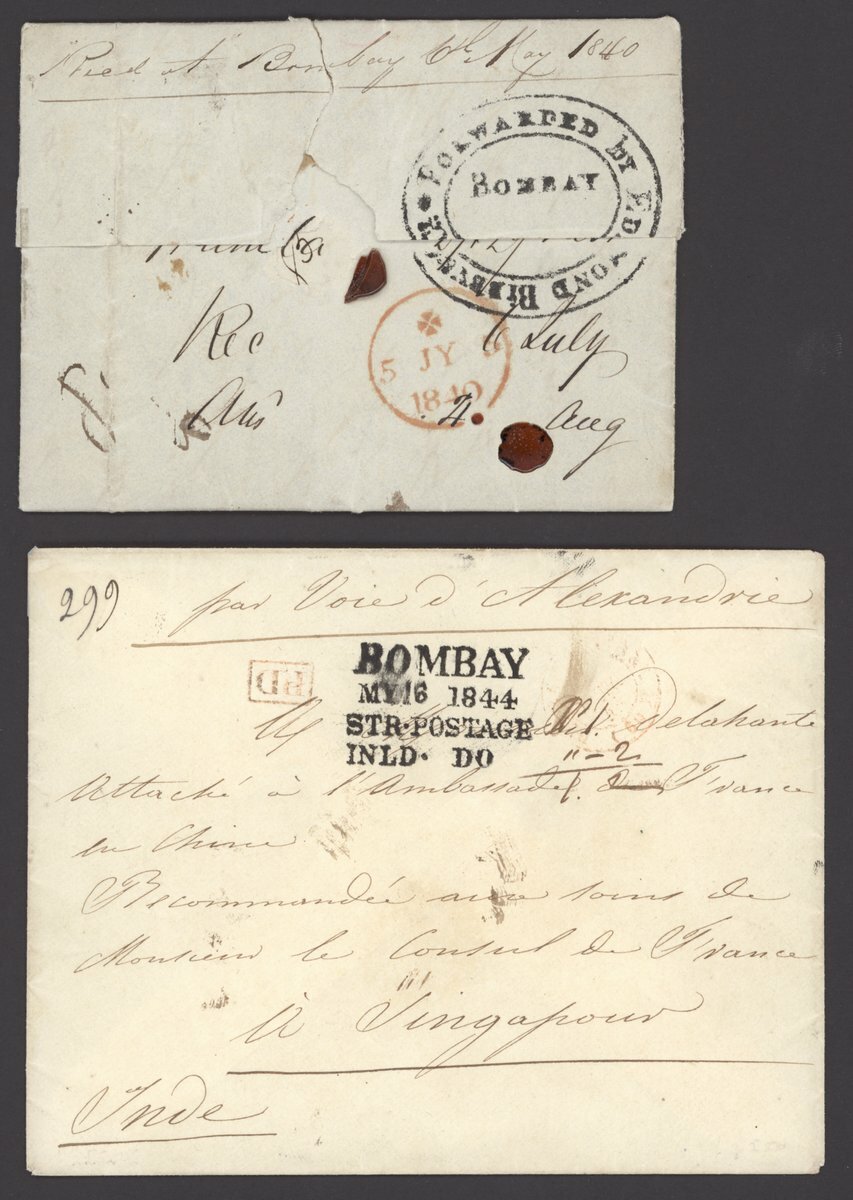 Recd at Bombay 6th May 1840
FORWARDED by EDMOND BIBBY & Co
BOMBAY
Rec 6 July
5 JY 5
1840
Ans 4. Aug
299
par Voie d'Alexandrie
PD
BOMBAY
MY 16 1844
STR. POSTAGE
INLD. DO
"-2
Delahante
Attaché à l'Ambassade de France
en Chine
Recommandée aux soins de
Monsieur le Consul de France
à Singapour
Inde